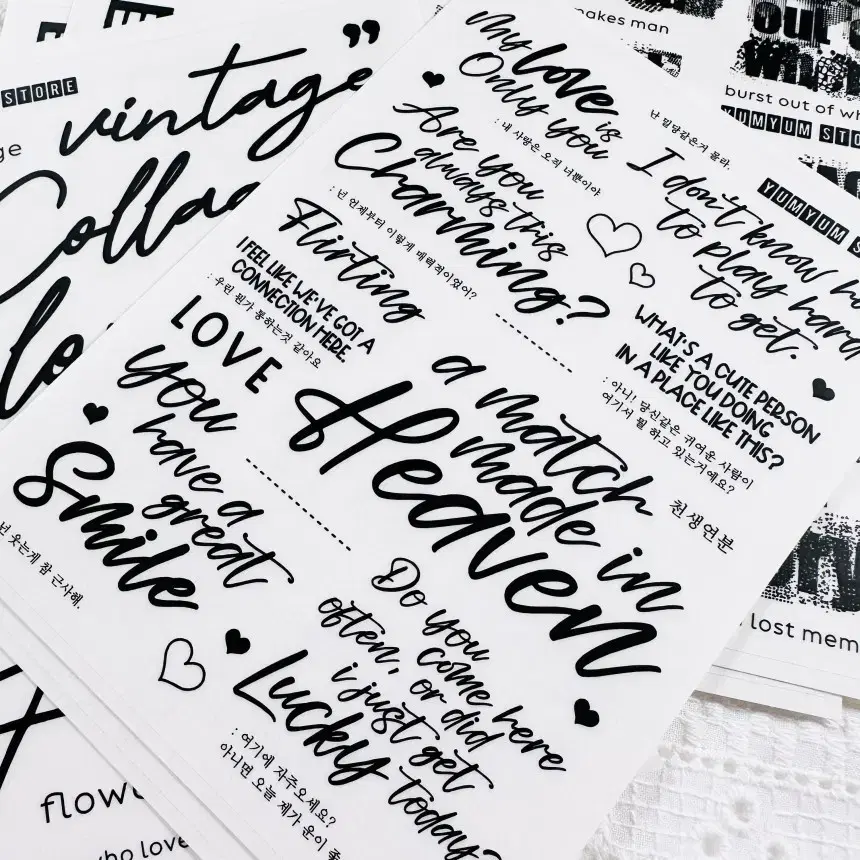 STORE
vintage"
Colla
lo
My love is
Only you
: 내 사랑은 오직 너뿐이야
Are you
always this
Charming?
: 넌 언제부터 이렇게 매력적이었어?
Flirting
I FEEL LIKE WE'VE GOT A
CONNECTION HERE.
: 우린 뭔가 통하는것 같아요
LOVE
you
have a
great
Smile
넌 웃는게 참 근사해.
난 밀당같은거 몰라.
I don't know h
to play hard
to get.
WHAT'S A CUTE PERSON
LIKE YOU DOING
IN A PLACE LIKE THIS?
: 아니! 당신같은 귀여운 사람이
여기서 뭘 하고 있는거에요?
a match
made in
Heaven
천생연분
Do you
come here
often, or did
i just get
Lucky today?
: 여기에 자주오세요?
아니면 오늘 제가 운이 좋
makes man
out
burst out of wh
YUMYUM STO
YUMYUM STORE
lost mem
flow
who love